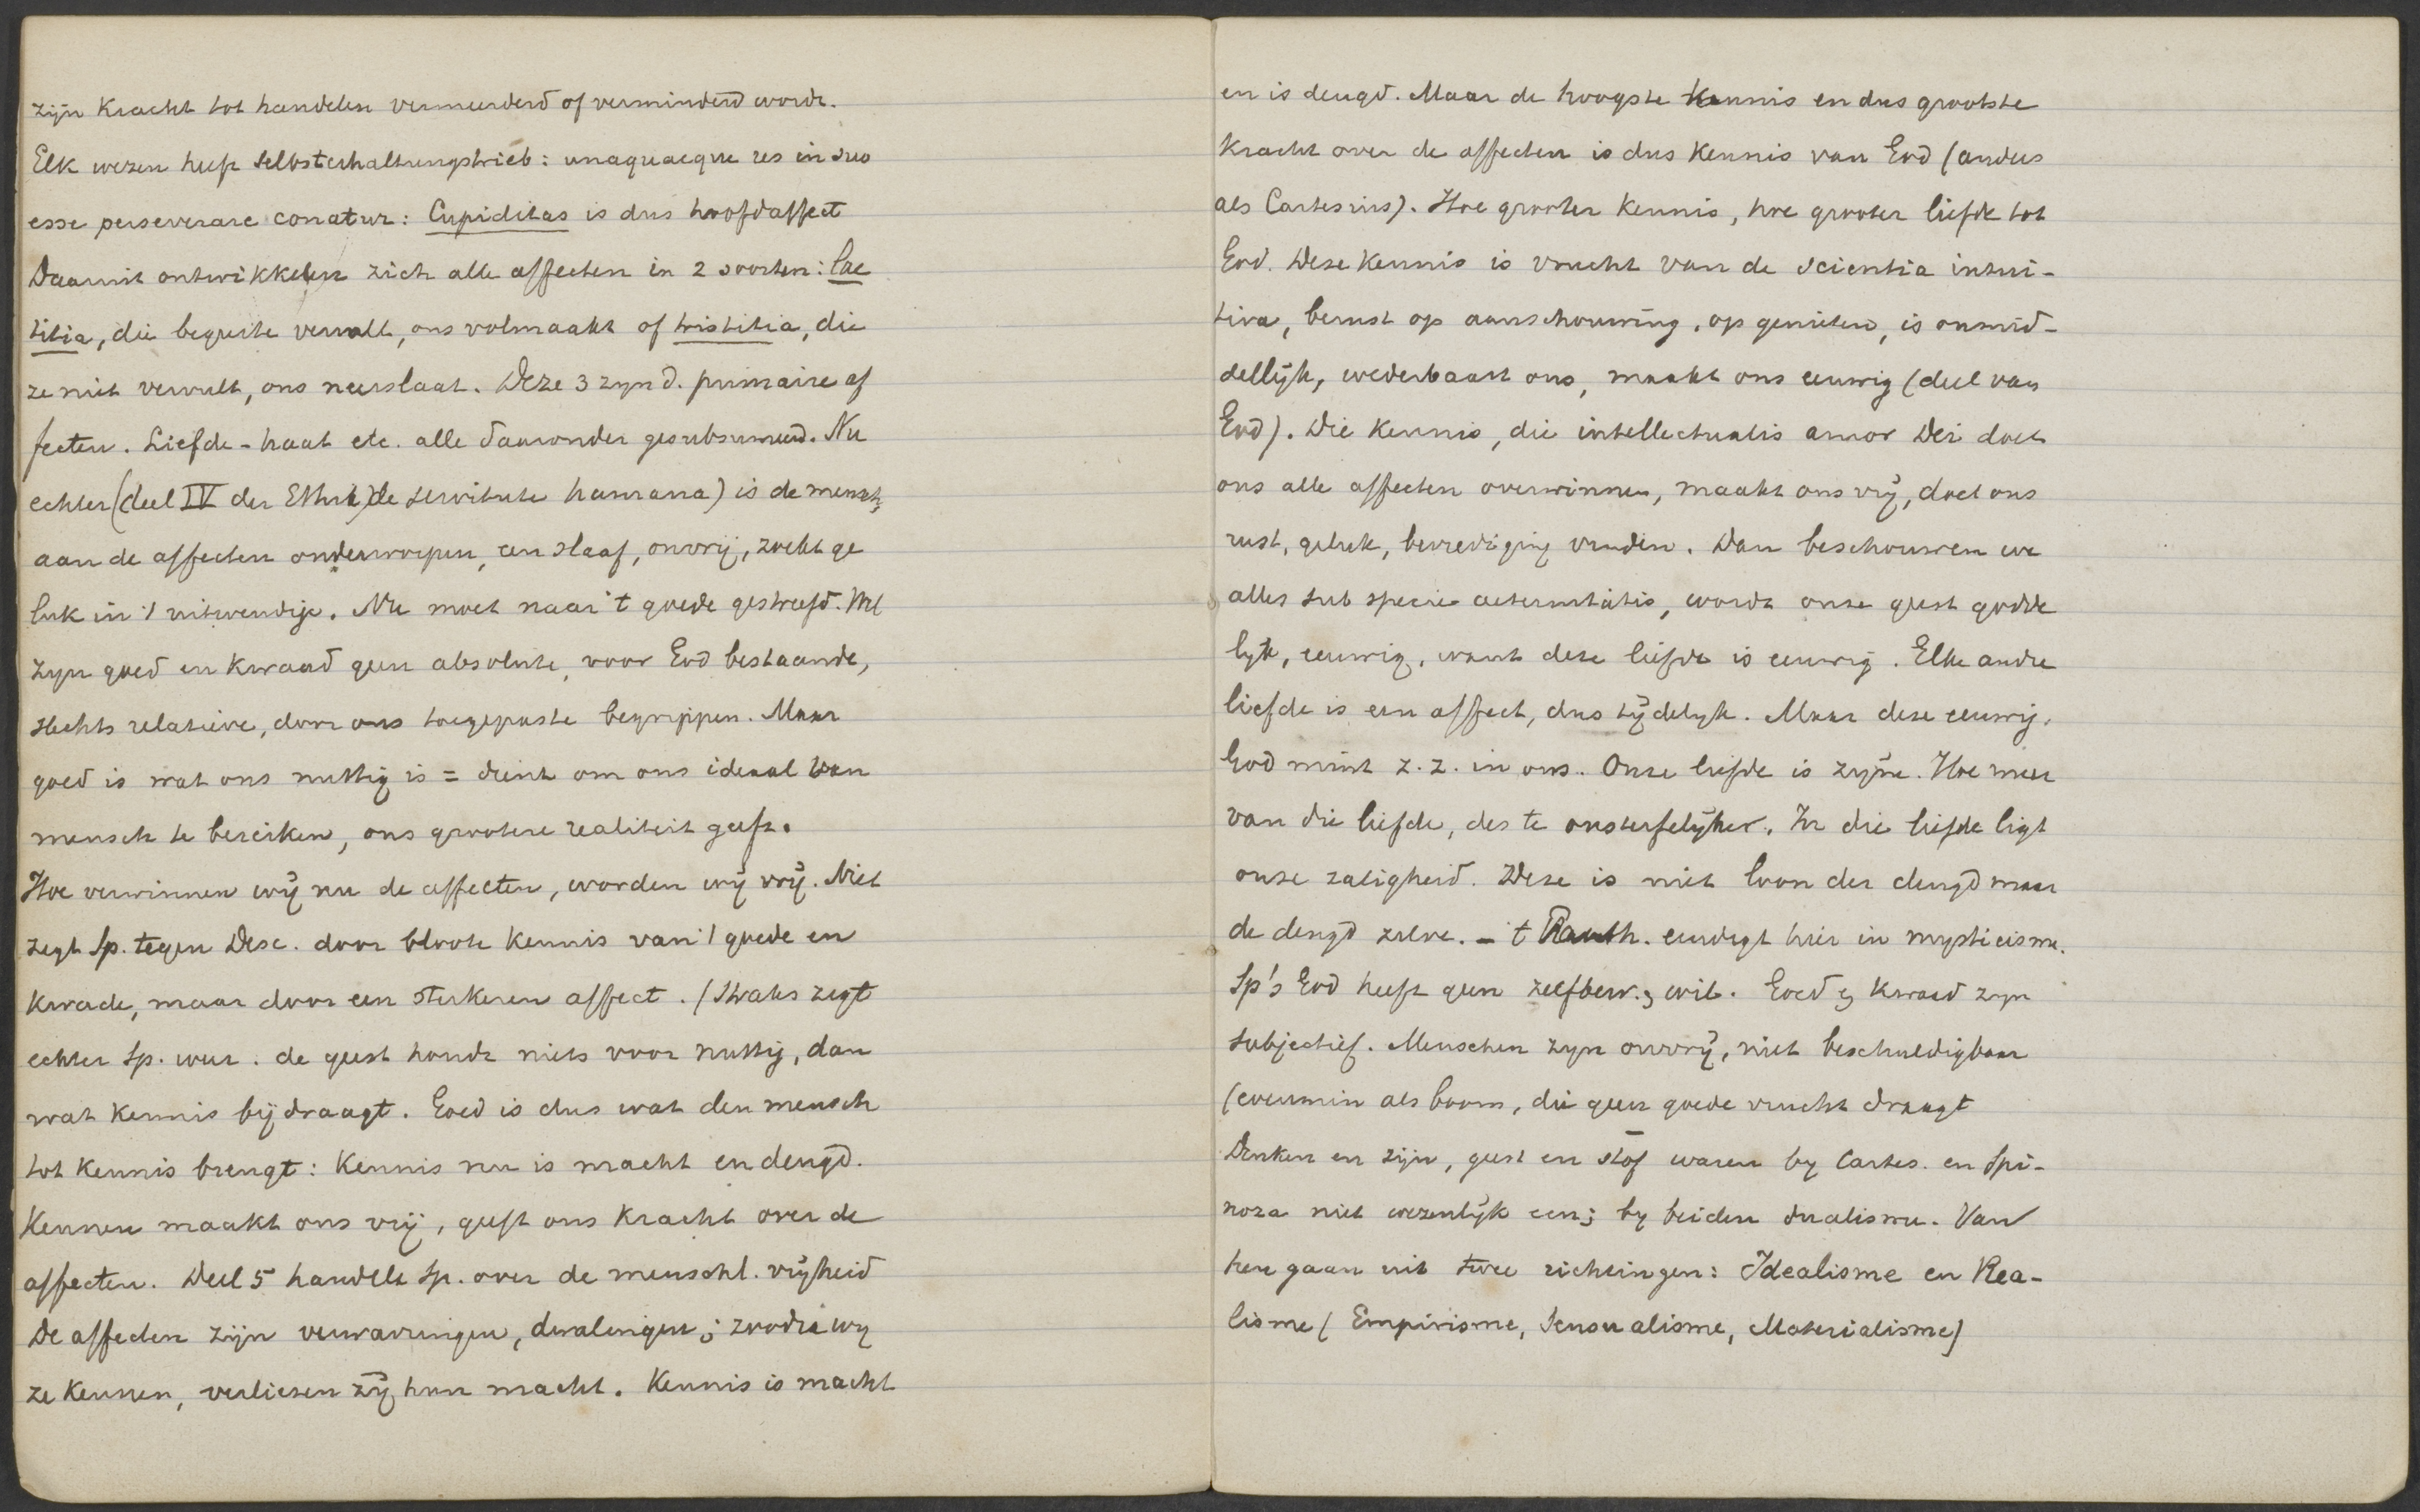 zijn kracht tot handelen vermeerderd of verminderd wordt.
Elk wezen heeft Selbsterhaltungstrieb: unaquaeque res in suo
esse perseverare conatur: Cupiditas is dus hoofdaffect
Daaruit ontwikkelen zich alle affecten in 2 soorten: lae
titia, die begeerte vervult, ons volmaakt of tristitia, die
ze niet vervult, ons neerslaat. Deze 3 zyn d. primaire af
fecten. Liefde-haat etc. alle daaronder gesubsumeerd. Nu
echter (deel IV der Ethik) de servitute humana) is de mensch,
aan de affecten onderworpen, een slaaf, onvrij, zoekt ge
luk in 't uitwendige. Nu moet naar 't goede gestreefd. Wel
zyn goed en kwaad geen absolute, voor God bestaande,
slechts relatieve, door ons toegepaste begrippen. Maar
goed is wat ons nuttig is = dient om ons ideaal van
mensch te bereiken, ons grootere realiteit geeft.
Hoe overwinnen wij nu de affecten, worden wij vrij. Niet
zegt Sp. tegen Desc. door bloote kennis van 't goede en
kwade, maar door een sterkeren affect. (Straks zegt
echter Sp. weer. de geest houdt niets voor nuttig, dan
wat kennis bijdraagt. Goed is dus wat den mensch
tot kennis brengt: kennis nu is macht en deugd.
Kennen maakt ons vrij, geeft ons kracht over de
affecten. Deel 5 handelt Sp. over de menschl. vrijheid
De affecten zijn verwarringen, dwalingen; zoodra wy
ze kennen, verliezen zij hun macht. Kennis is macht
en is deugd. Maar de hoogste kennis en dus grootste
kracht over de affecten is dus kennis van God (anders
als Cartesius). Hoe grooter kennis, hoe grooter liefde tot
God. Deze kennis is vrucht van de scientia intui-
tiva, berust op aanschouwing, op genieten, is onmid-
dellijk, wederbaart ons, maakt ons eeuwig (deel van
God). Die kennis, die intellectualis amor Dei doet
ons alle affecten overwinnen, maakt ons vrij, doet ons
rust, geluk, bevrediging vinden. Dan beschouwen we
alles sub specie aeternitatis, wordt onze geest godde
lyk, eeuwig, want deze liefde is eeuwig. Elke andre
liefde is een affect, dus tijdelyk. Maar deze eeuwig.
God mint z.z. in ons. Onze liefde is zyne. Hoe meer
van die liefde, des te onsterfelijker. In die liefde ligt
onze zaligheid. Deze is niet loon der deugd maar
de deugd zelve. - 't Panth. eindigt hier in mysticisme.
Sp's God heeft geen zelfbew. & wil. Goed & kwaad zyn
subjectief. Menschen zyn onvrij, niet beschuldigbaar
(evenmin als boom, die geen goede vrucht draagt
Denken en zijn, geest en stof waren by Cartes. en Spi-
noza niet wezenlijk een; by beiden dualisme. Van
hen gaan uit twee richtingen: Idealisme en Rea-
lisme (Empirisme, Sensualisme, Materialisme)